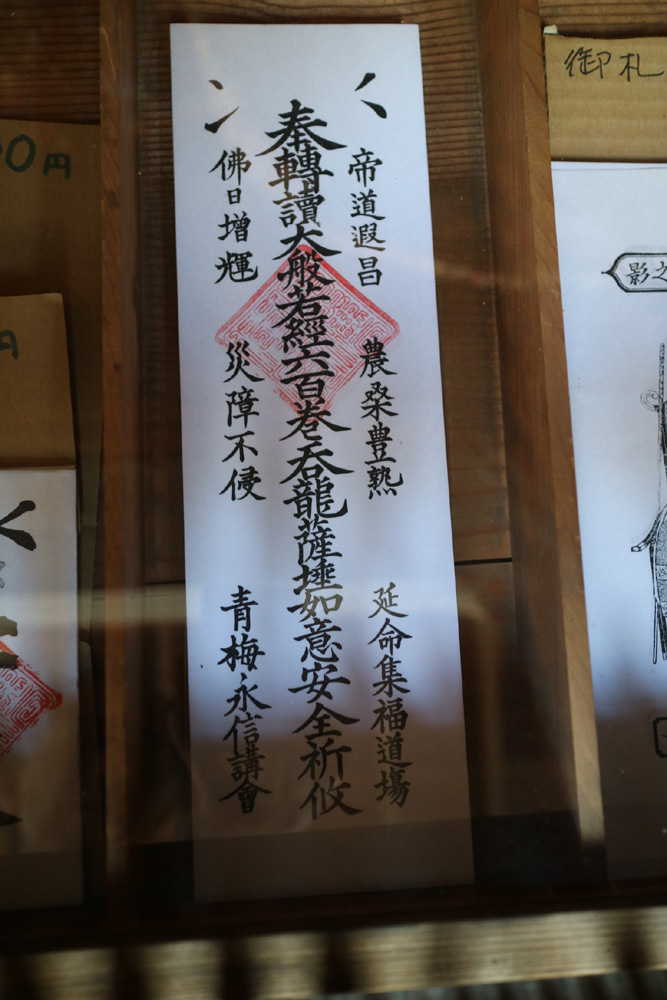 御札
之影
帝道遐昌 農桑豊熟 延命集福道場
奉轉讀大般若經六百巻呑龍薩埵如意安全祈攸
佛日增輝 災障不侵 青梅永信講會
0円
円